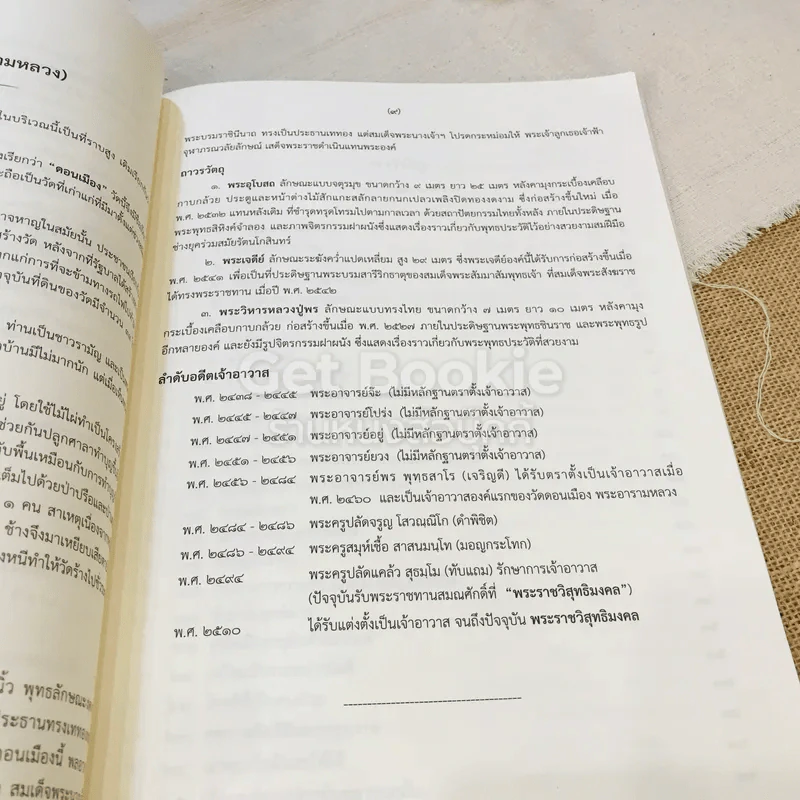 ามหลวง)
ในบริเวณนี้เป็นที่ราบสูง เดิม
เรียกว่า “ดอนเมือง” วัดนี้
ถือเป็นวัดที่เก่าแก่ที่มีมาตั้งแต่
าจหาญในสมัยนั้น ประชาชน
ร้างวัด หลังจากที่รัฐบาลได้
กแก่การที่จะข้ามทางรถไฟไป
จจุบันที่ดินของวัดมีจำนวน
ท่านเป็นชาวรามัญ และเป็น
บ้านมีไม่มากนัก แต่เมื่อ
ยู่ โดยใช้ไม้ไผ่ทำเป็นโครง
ช่วยกันปลูกศาลาทำบุญขึ้น
บพื้นเหมือนกับการทำ
ต็มไปด้วยป่าปรือและ
๑ คน สาเหตุเนื่องจาก
ช้างจึงมาเหยียบเสีย
งหนีทำให้วัดร้างไปชั่ว
นิ้ว พุทธลักษณะ
ประธานทรงเททอง
ดอนเมืองนี้ พล
สมเด็จพระนาง
(๙)
พระบรมราชินีนาถ ทรงเป็นประธานเททอง แต่สมเด็จพระนางเจ้าฯ โปรดกระหม่อมให้ พระเจ้าลูกเธอเจ้าฟ้า
จุฬาภรณวลัยลักษณ์ เสด็จพระราชดำเนินแทนพระองค์
ถาวรวัตถุ
๑. พระอุโบสถ ลักษณะแบบจตุรมุข ขนาดกว้าง ๙ เมตร ยาว ๒๕ เมตร หลังคามุงกระเบื้องเคลือบ
กาบกล้วย ประตูและหน้าต่างไม้สักแกะสลักลายกนกเปลวเพลิงปิดทองงดงาม ซึ่งก่อสร้างขึ้นใหม่ เมื่อ
พ.ศ. ๒๕๓๒ แทนหลังเดิม ที่ชำรุดทรุดโทรมไปตามกาลเวลา ด้วยสถาปัตยกรรมไทยทั้งหลัง ภายในประดิษฐาน
พระพุทธสิหิงค์จำลอง และภาพจิตรกรรมฝาผนังซึ่งแสดงเรื่องราวเกี่ยวกับพุทธประวัติไว้อย่างสวยงามสมฝีมือ
ช่างยุคร่วมสมัยรัตนโกสินทร์
๒. พระเจดีย์ ลักษณะระฆังคว่ำแปดเหลี่ยม สูง ๒๙ เมตร ซึ่งพระเจดีย์องค์นี้ได้รับการก่อสร้างขึ้นเมื่อ
พ.ศ. ๒๕๔๑ เพื่อเป็นที่ประดิษฐานพระบรมสารีริกธาตุของสมเด็จพระสัมมาสัมพุทธเจ้า ที่สมเด็จพระสังฆราช
ได้ทรงพระราชทาน เมื่อปี พ.ศ. ๒๕๔๒
๓. พระวิหารหลวงปู่พร ลักษณะแบบทรงไทย ขนาดกว้าง ๗ เมตร ยาว ๑๐ เมตร หลังคามุง
กระเบื้องเคลือบกาบกล้วย ก่อสร้างขึ้นเมื่อ พ.ศ. ๒๕๒๗ ภายในประดิษฐานพระพุทธชินราช และพระพุทธรูป
อีกหลายองค์ และยังมีรูปจิตรกรรมฝาผนัง ซึ่งแสดงเรื่องราวเกี่ยวกับพระพุทธประวัติที่สวยงาม
ลำดับอดีตเจ้าอาวาส
Get Bookie
พ.ศ. ๒๔๓๘ - ๒๔๔๕ พระอาจารย์จ๊ะ (ไม่มีหลักฐานตราตั้งเจ้าอาวาส)
พ.ศ. ๒๔๔๕ - ๒๔๔๗ พระอาจารย์โปร่ง (ไม่มีหลักฐานตราตั้งเจ้าอาวาส)
พ.ศ. ๒๔๔๗ - ๒๔๕๑ พระอาจารย์อยู่ (ไม่มีหลักฐานตราตั้งเจ้าอาวาส)
พ.ศ. ๒๔๕๑ - ๒๔๕๖ พระอาจารย์ยวง (ไม่มีหลักฐานตราตั้งเจ้าอาวาส)
พ.ศ. ๒๔๕๖ - ๒๔๘๔ พระอาจารย์พร พุทธสาโร (เจริญดี) ได้รับตราตั้งเป็นเจ้าอาวาสเมื่อ
พ.ศ. ๒๔๖๐ และเป็นเจ้าอาวาสองค์แรกของวัดดอนเมือง พระอารามหลวง
พ.ศ. ๒๔๘๔ - ๒๔๘๖ พระครูปลัดจรูญ โสวณณิโก (ดำพิชิต)
พ.ศ. ๒๔๘๖ - ๒๔๙๔ พระครูสมุห์เชื้อ สาสนมนฺโท (มอญกระโทก)
พ.ศ. ๒๔๙๔ พระครูปลัดแคล้ว สุธมฺโม (ทับแถม) รักษาการเจ้าอาวาส
(ปัจจุบันรับพระราชทานสมณศักดิ์ที่ “พระราชวิสุทธิมงคล”)
พ.ศ. ๒๕๑๐ ได้รับแต่งตั้งเป็นเจ้าอาวาส จนถึงปัจจุบัน พระราชวิสุทธิมงคล